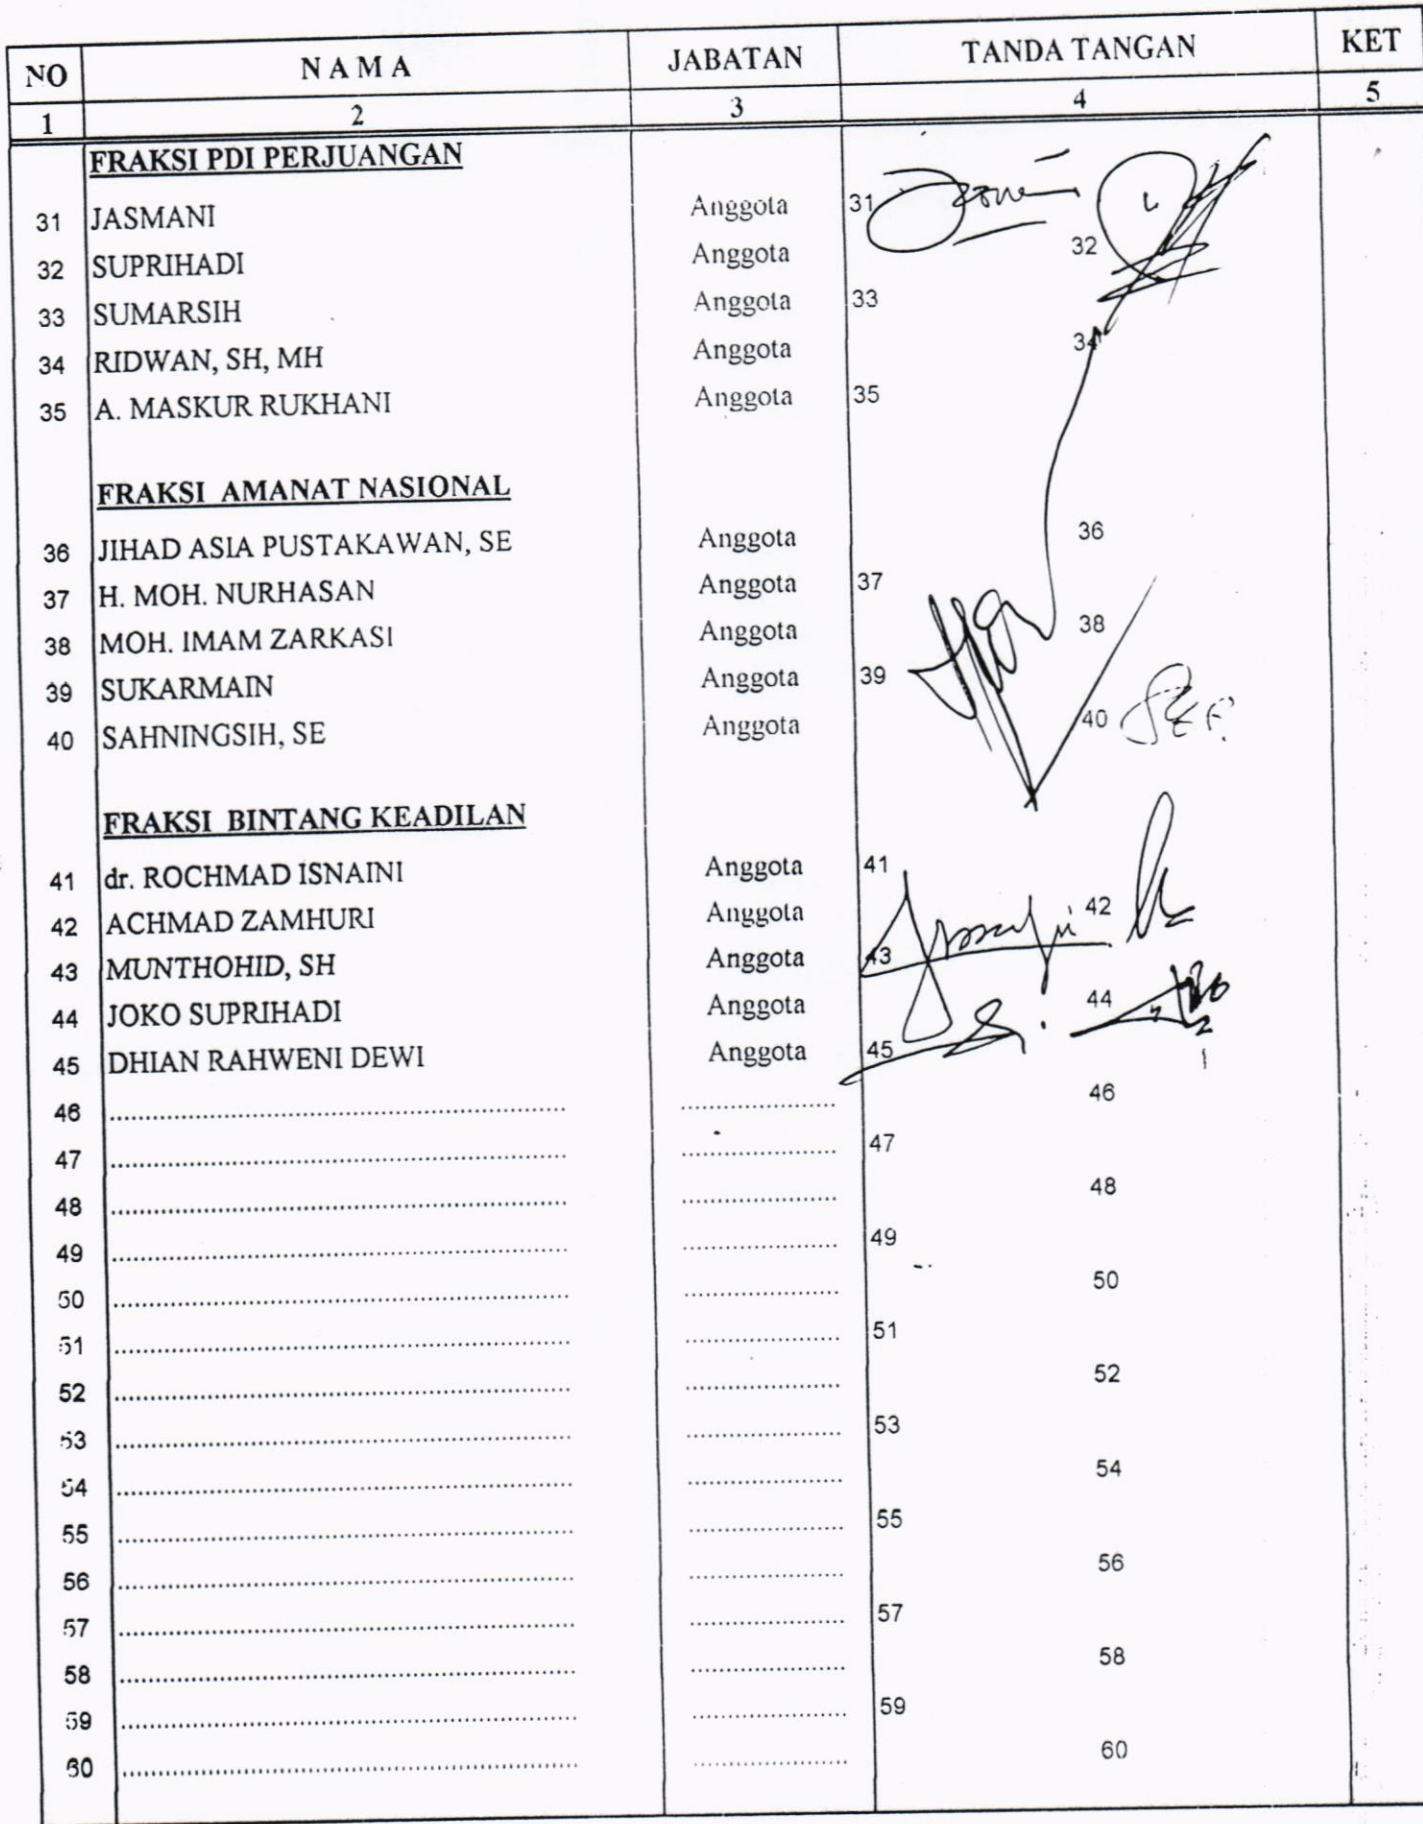 NO N A M A JABATAN TANDA TANGAN KET
1 2 3 4 5
FRAKSI PDI PERJUANGAN
31 JASMANI Anggota 31
32 SUPRIHADI Anggota 32
33 SUMARSIH Anggota 33
34 RIDWAN, SH, MH Anggota 34
35 A. MASKUR RUKHANI Anggota 35
FRAKSI AMANAT NASIONAL
36 JIHAD ASIA PUSTAKAWAN, SE Anggota 36
37 H. MOH. NURHASAN Anggota 37
38 MOH. IMAM ZARKASI Anggota 38
39 SUKARMAIN Anggota 39
40 SAHNINGSIH, SE Anggota 40
FRAKSI BINTANG KEADILAN
41 dr. ROCHMAD ISNAINI Anggota 41
42 ACHMAD ZAMHURI Anggota 42
43 MUNTHOHID, SH Anggota 43
44 JOKO SUPRIHADI Anggota 44
45 DHIAN RAHWENI DEWI Anggota 45
46 ........ ........ 46
47 ........ ........ 47
48 ........ ........ 48
49 ........ ........ 49
50 ........ ........ 50
51 ........ ........ 51
52 ........ ........ 52
53 ........ ........ 53
54 ........ ........ 54
55 ........ ........ 55
56 ........ ........ 56
57 ........ ........ 57
58 ........ ........ 58
59 ........ ........ 59
60 ........ ........ 60